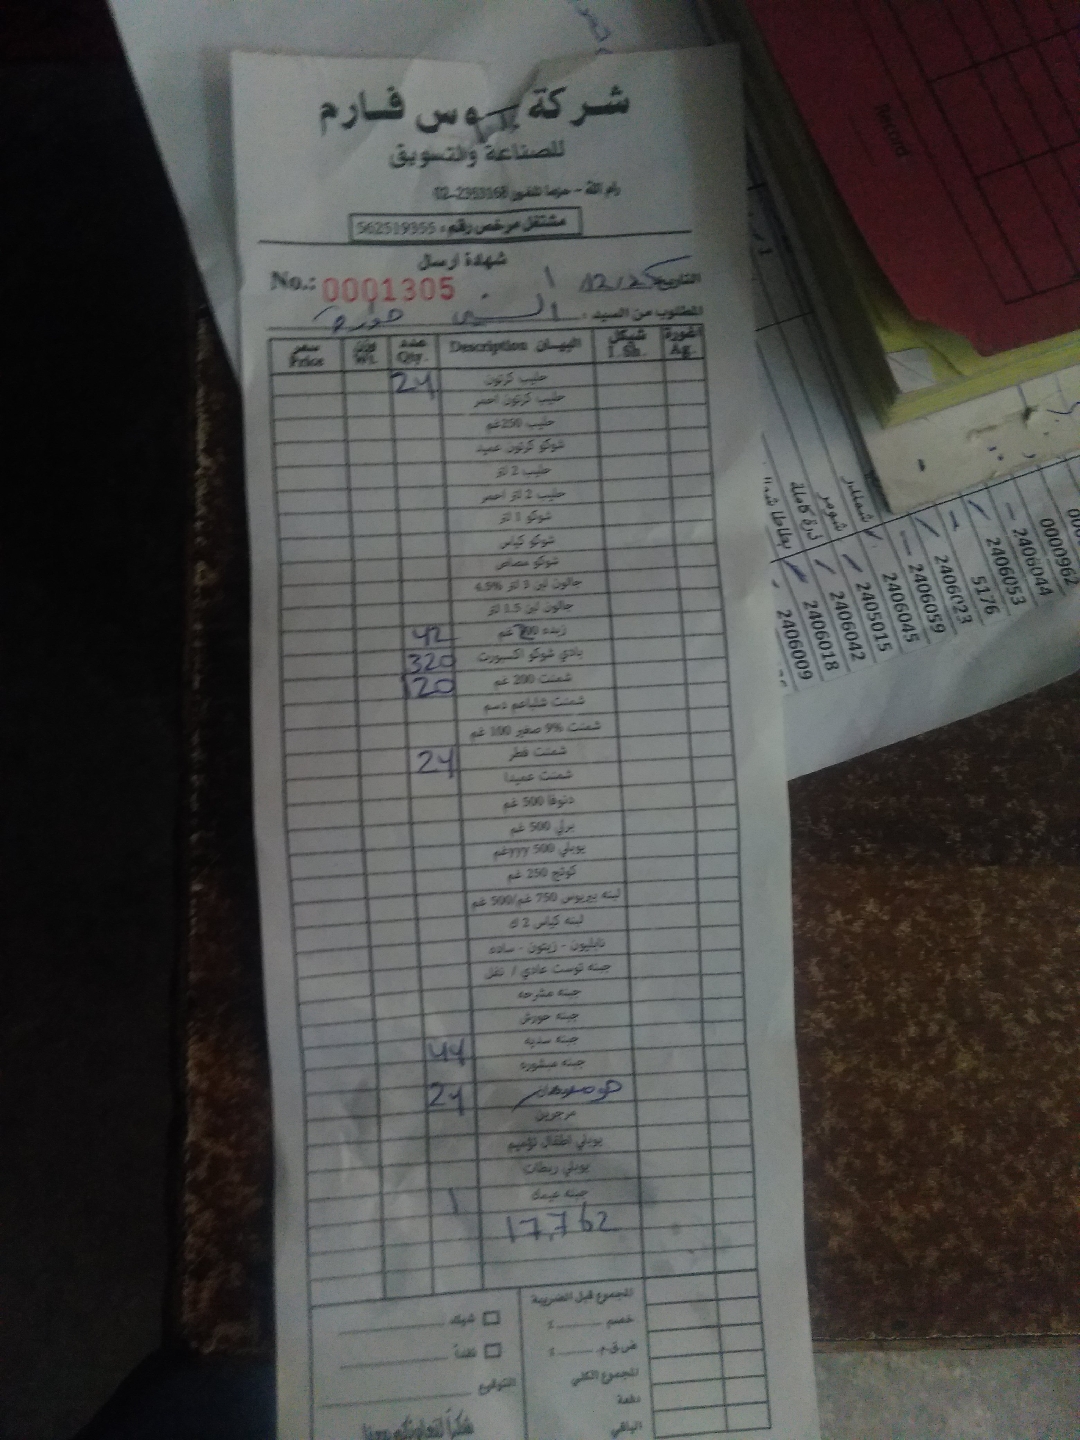 شركة وس فارم
للصناعة والتسويق
رام الله - حزما تلفون 02-2353168
مشتغل مرخص رقم: 562519355
شهادة ارسال
No.: 0001305 التاريخ 12/25
المطلوب من السيد:
اغورة شيكل البيان Description عدد وزن سعر
Ag. I.Sh. Qty. Wt. Price
حليب كرتون 24
حليب كرتون احمر
حليب 250غم
شوكو كرتون عميد
حليب 2 لتر
حليب 2 لتر احمر
شوكو 1 لتر
شوكو كياس
شوكو مصاص
جالون لبن 3 لتر 4.5%
جالون لبن 1.5 لتر
زبده غم 42
بادي شوكو اكسبورت 320
شمنت 200 غم 120
شمنت شلباعم دسم
شمنت 9% صغير 100 غم
شمنت قطر 24
شمنت عميدا
دنوفا 500 غم
برلي 500 غم
يوبلي 500 yyyغم
كوتج 250 غم
لبنه بيريوس 750 غم/500 غم
لبنه كياس 2 ك
نابليون - زيتون - ساده
جبنه توست عادي /
جبنه مشرحه
جبنه حورش
جبنه سديه 44
جبنه مبشوره
24
مرجرين
يوبلي اطفال تؤميم
يوبلي ربطات
جبنه عيمك 1
17,762
المجموع قبل الضريبة
خصم ٪
ض.ق.م. ٪
المجموع الكلي
دفعة
الباقي
شيك
نقداً
التوقيع
شكراً لتعاونكم معنا
Record
شمندر
شومر
ذرة كاملة
بطاطا
0000962
2406044
2406053
5176
2406023
2406059
2406045
2405015
2406042
2406018
2406009